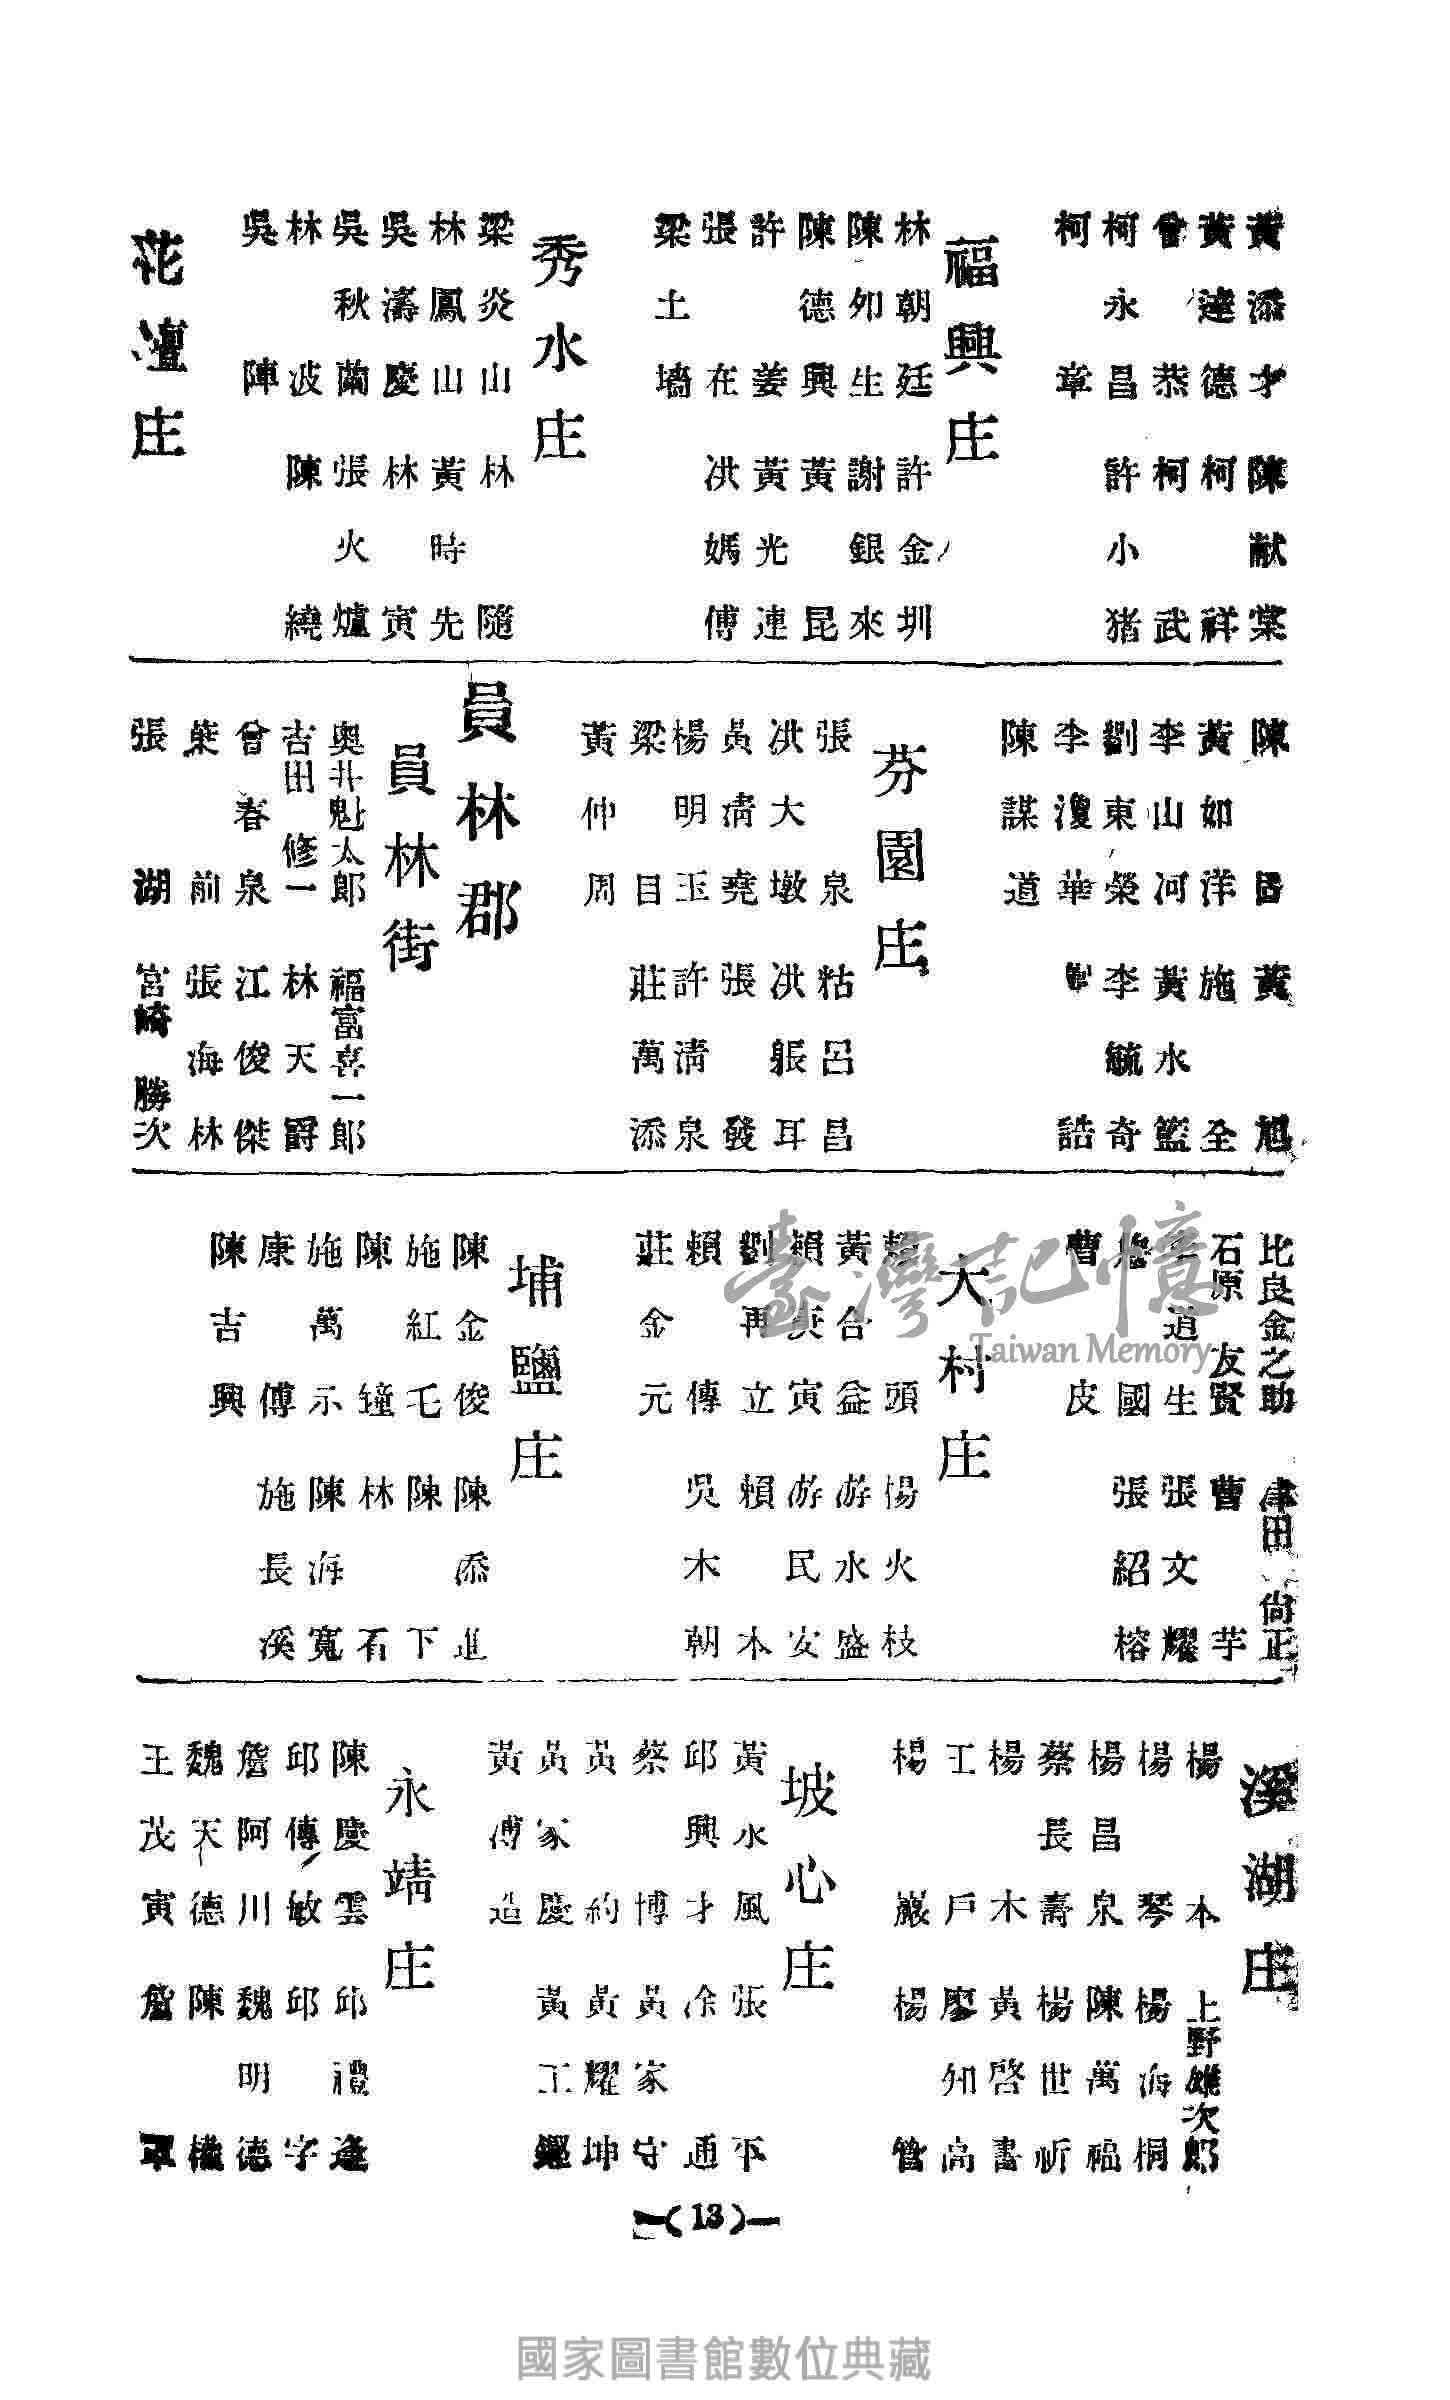 黃添才 陳献棠
黃達德 柯祥
曾恭 柯武
柯永昌 許小猪
柯章
福興庄
林朝廷 許金圳
陳夘生 謝銀來
陳德興 黃昆
許姜 黃光連
張在 洪媽傅
梁土墻
秀水庄
梁炎山 林隨
林鳳山 黃時先
吳濤慶 林寅
吳秋蘭 張火爐
林波 陳繞
吳陣
花壇庄
陳昌 黃旭
黃如洋 施全
李山河 黃水籃
劉東榮 李毓奇
李濅華 誥
陳謀道
芬園庄
張泉 粘呂昌
洪大墩 洪賬耳
黃清堯 張發
楊明玉 許清泉
梁目 莊萬添
黃仲周
員林郡
員林街
奧井魁太郎 福富喜一郎
吉田修一 林天爵
曾春泉 江俊傑
葉前 張海林
張湖 宮崎勝次
比良金之助 津田尙正
石原友賢 曹芋
道生 張文耀
國 張紹榕
曹皮
大村庄
賴頭 楊火枝
黃合益 游水盛
賴英寅 游民安
劉再立 賴木
賴傳 吳木朝
莊金元
埔鹽庄
陳金俊 陳添進
施紅毛 陳下
陳鐘 林石
施萬示 陳海寬
康傅 施長溪
陳吉興
溪湖庄
楊本 上野雄次郎
楊琴 楊海桐
楊昌泉 陳萬福
蔡長壽 楊世祈
楊木 黃啓書
王戶 廖知高
楊巖 楊管
坡心庄
黃水風 張下
邱興才 涂通
蔡博 黃家守
黃約 黃耀坤
黃家慶 黃工
黃溥造
永靖庄
陳慶雲 邱禮逢
邱傳敏 邱字
詹阿川 魏明德
魏天德 陳橫
王茂寅 詹覃
—(13)—
臺灣記憶
Taiwan Memory
國家圖書館數位典藏